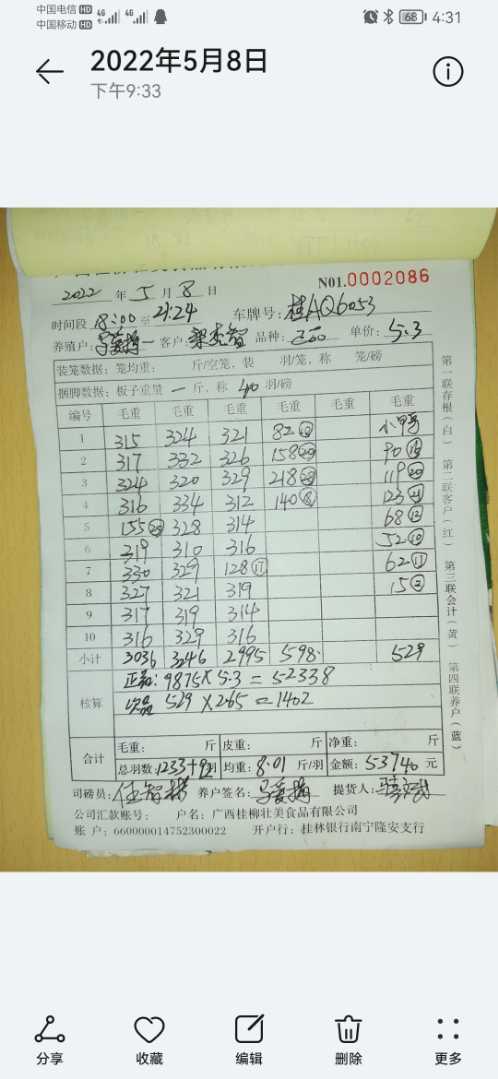 中国电信 HD 4G 4G
中国移动 HD
68 4:31
2022年5月8日
下午9:33
N01.0002086
2022 年 5 月 8 日
时间段 18:00 至 21:24 车牌号: 桂AQ6053
养殖户: 客户: 品种: 单价: 5.3
装笼数据: 笼均重: 斤/空笼, 装 羽/笼, 称 笼/磅
捆脚数据: 板子重量 一 斤, 称 40 羽/磅
编号 毛重 毛重 毛重 毛重 毛重 毛重
1 315 324 321 82
2 317 332 326 158 90
3 324 320 329 218 119
4 316 334 312 140 123
5 155 328 314 68
6 319 310 316 52
7 330 329 128⑰ 62⑪
8 327 321 319 15
9 317 319 314
10 316 329 316
小计 3036 3246 2995 598 529
核算
正品: 9875×5.3=52338
次品 529×2.65=1402
合计
毛重: 斤 皮重: 斤 净重: 斤
总羽数: 1233+92羽 均重: 8.01 斤/羽 金额: 53740 元
司磅员: 养户签名: 提货人:
公司汇款账号: 户名: 广西桂柳壮美食品有限公司
账 户: 660000014752300022 开户行: 桂林银行南宁隆安支行
第一联存根(白) 第二联客户(红) 第三联会计(黄) 第四联养户(蓝)
分享 收藏 编辑 删除 更多